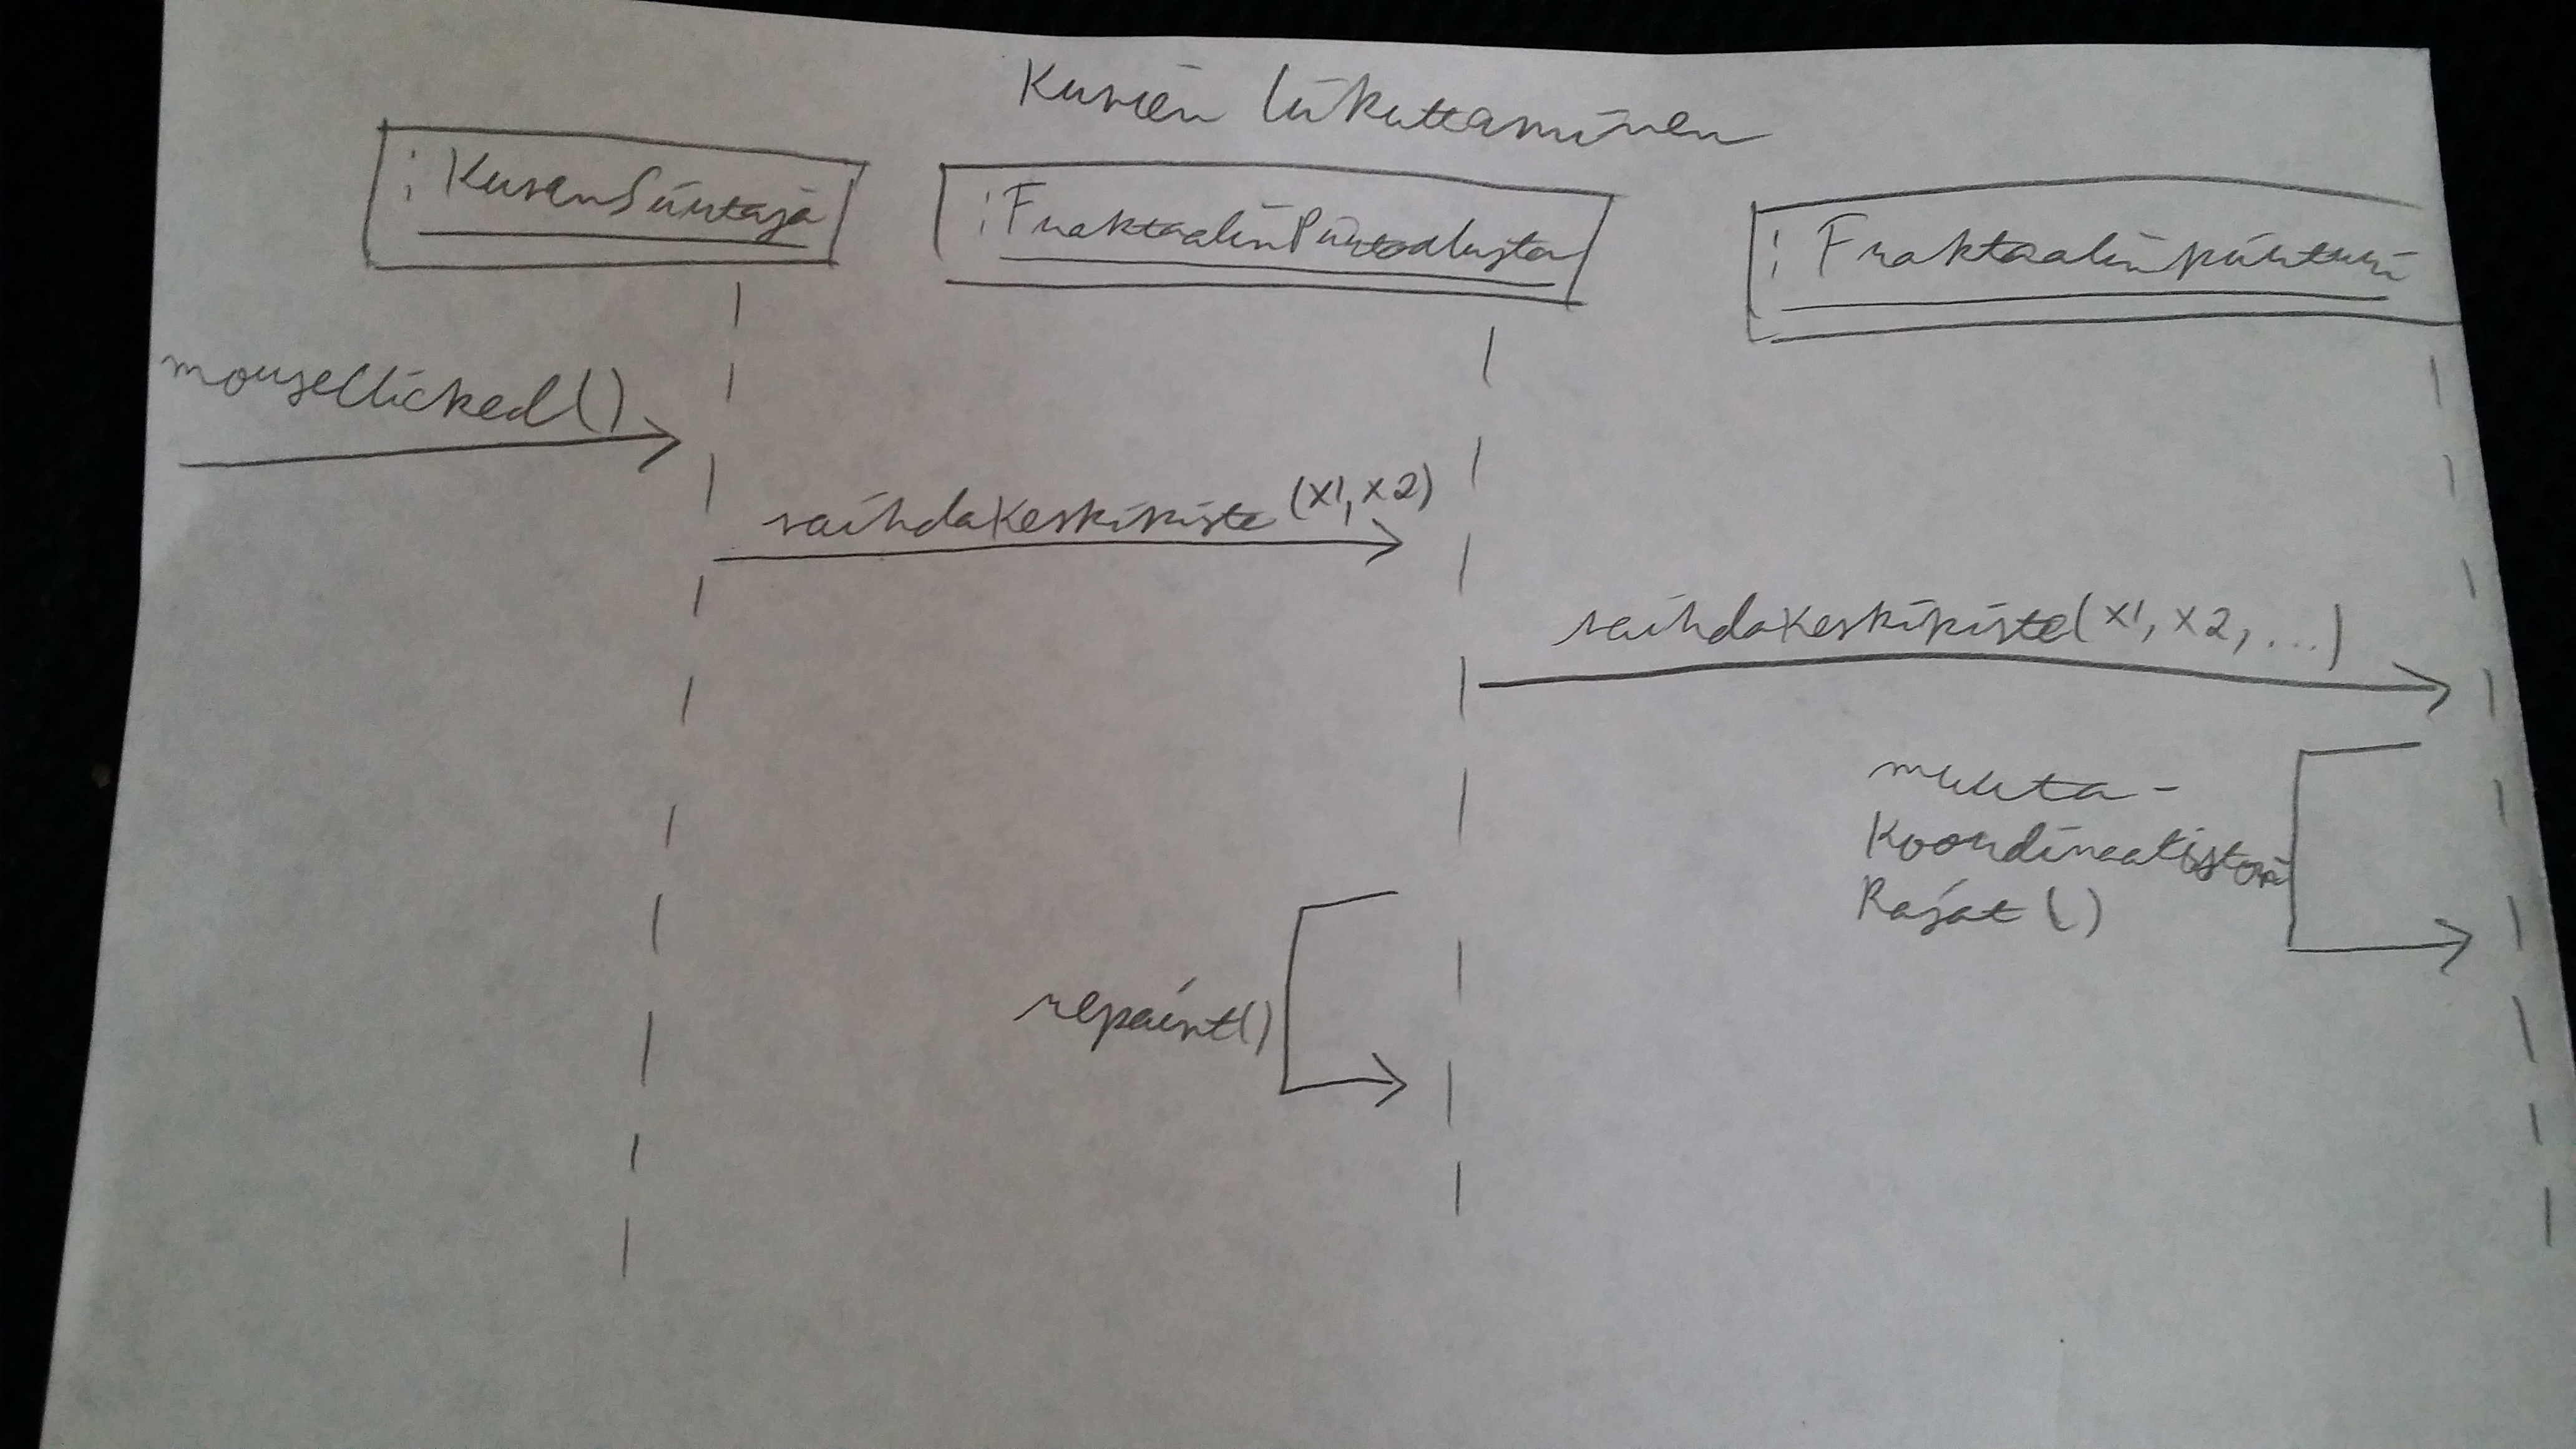 Kuvien liikuttaminen
: KuvanSiirtäjä
: FraktaalinPiirtoalusta
: Fraktaalinpiirturi
mouseClicked()
vaihdaKeskipiste (x1, x2)
vaihdaKeskipiste(x1, x2, ...)
muuta-
Koordinaatiston
Rajat ()
repaint()